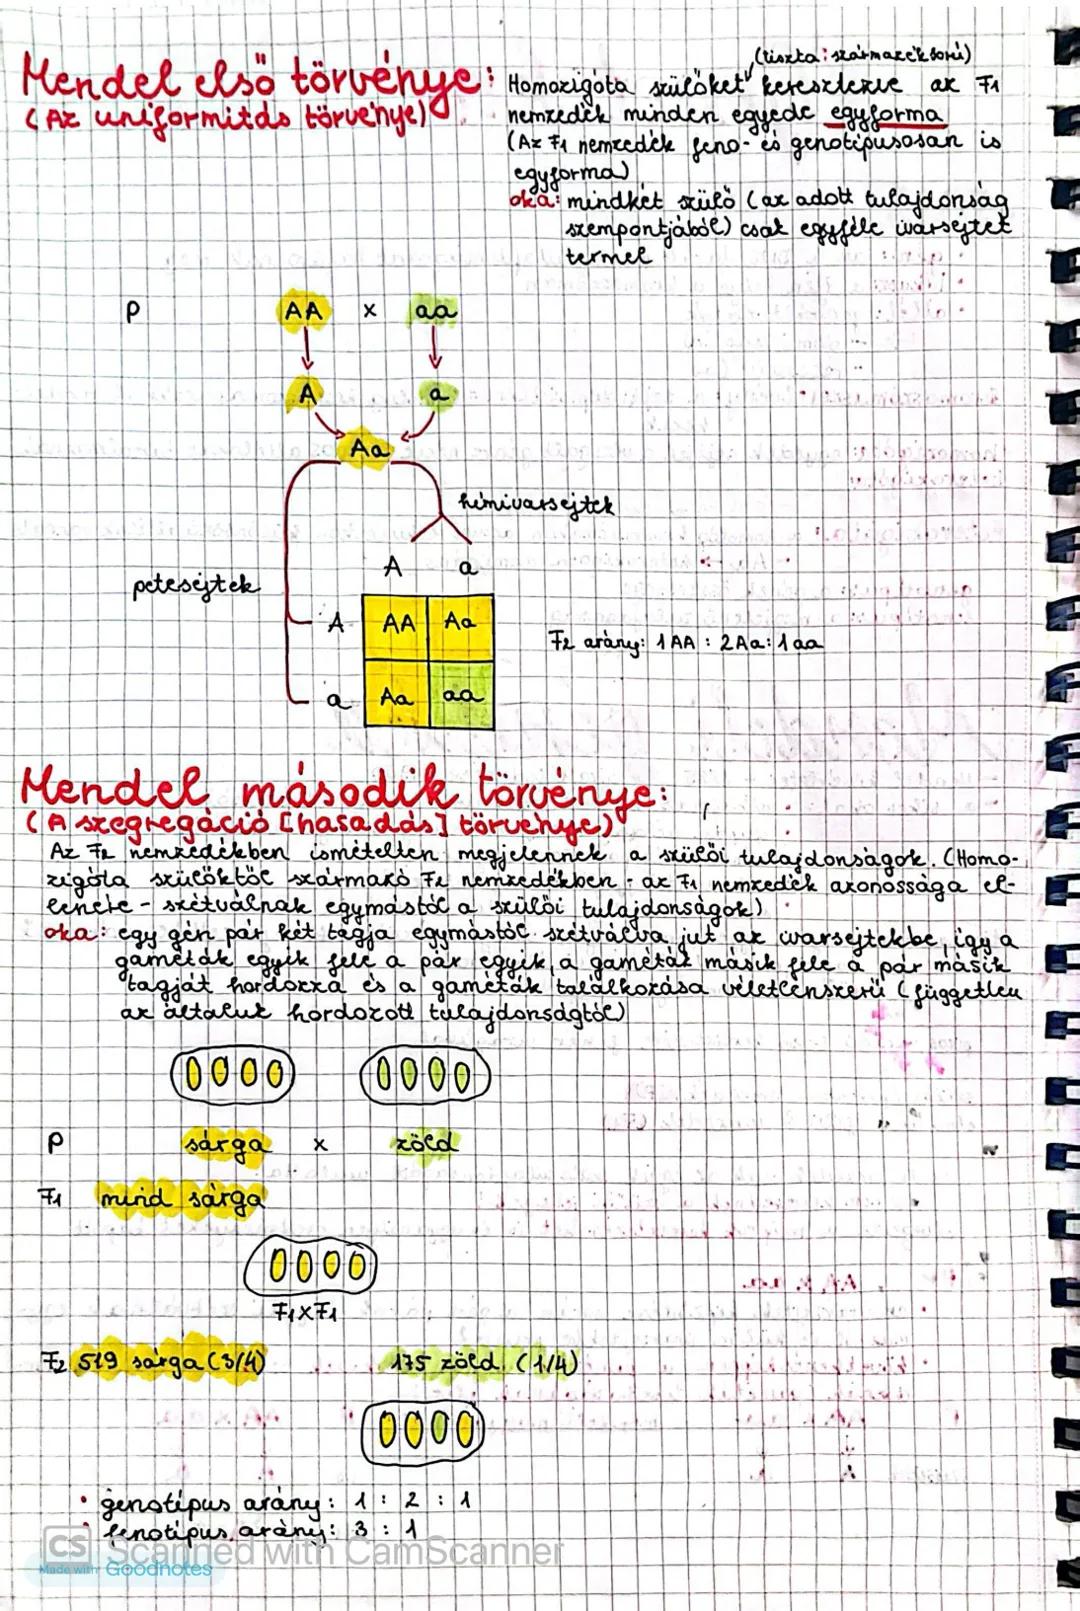 Mendel első törvénye:
(Az uniformitás törvénye)
(tiszta: származéksorú)
Homozigóta szülőket keresztezve az F1
nemzedék minden egyede egyforma
(Az F1 nemzedék feno- és genotípusosan is
egyforma)
oka: mindkét szülő (az adott tulajdonság
szempontjából) csak egyféle ivarsejtet
termel
P AA x aa
A a
Aa
hímivarsejtek
A a
petesejtek
A AA Aa
F2 arány: 1AA : 2Aa: 1aa
a Aa aa
Mendel második törvénye:
(A szegregáció [hasadás] törvénye)
Az F2 nemzedékben ismételten megjelennek a szülői tulajdonságok. (Homo-
zigóta szülőktől származó F2 nemzedékben - az F1 nemzedék azonossága el-
lenére - szétválnak egymástól a szülői tulajdonságok)
oka: egy gén pár két tagja egymástól szétválva jut az ivarsejtekbe, így a
gaméták egyik fele a pár egyik, a gaméták másik fele a pár másik
tagját hordozza és a gaméták találkozása véletlenszerű (független
az általuk hordozott tulajdonságtól)
P sárga x zöld
F1 mind sárga
F1XF1
F2 519 sárga (3/4) 175 zöld (1/4)
• genotípus arány: 1 : 2 : 1
• fenotípus arány: 3 : 1
CS Scanned with CamScanner
Made with Goodnotes